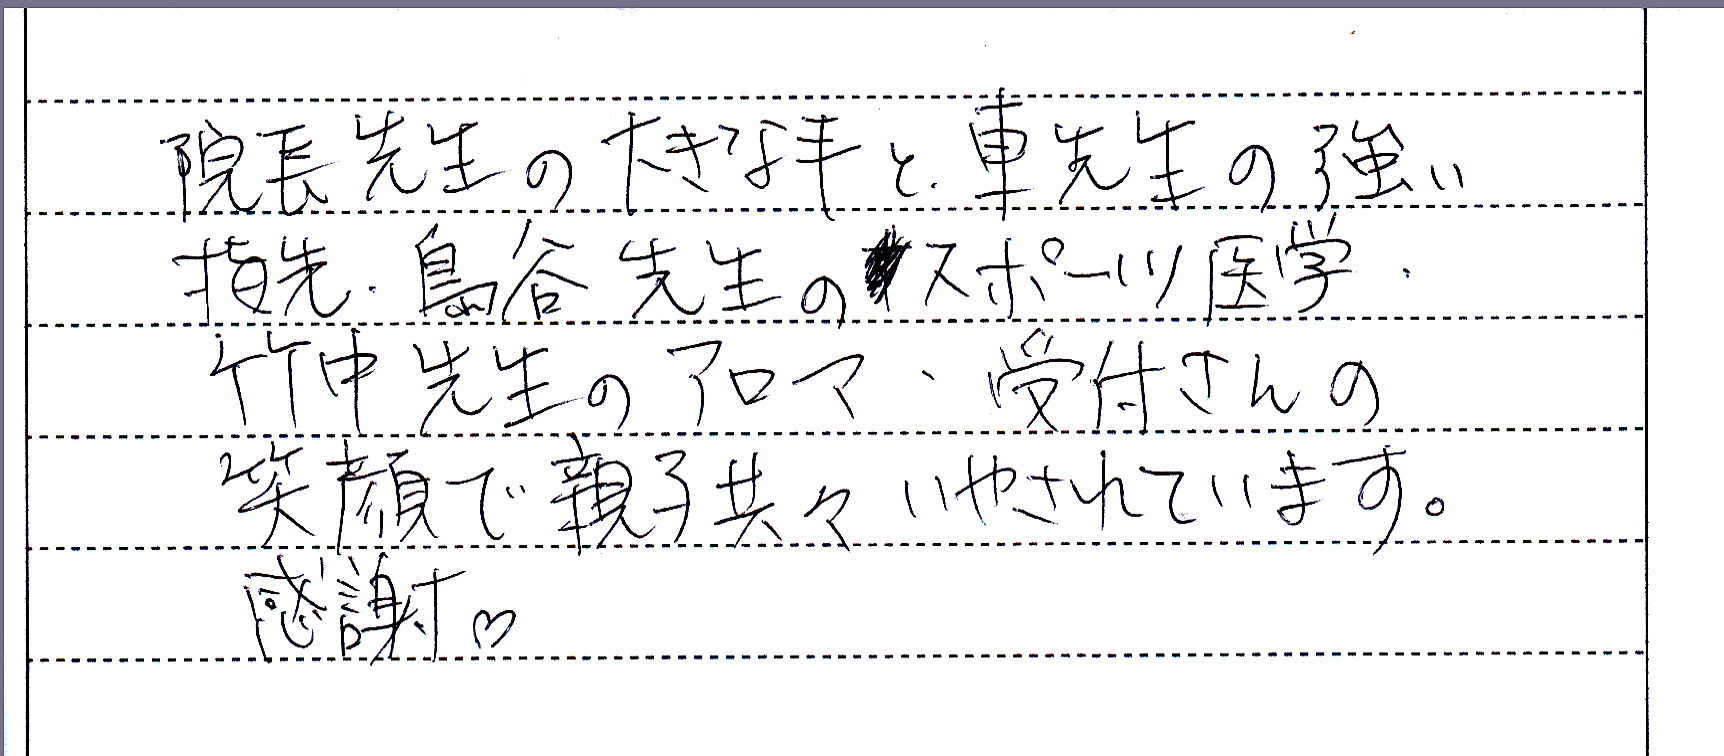 院長先生の大きな手と、車先生の強い
指先、鳥谷先生のスポーツ医学、
竹中先生のアロマ、受付さんの
笑顔で親子共々いやされています。
感謝♡